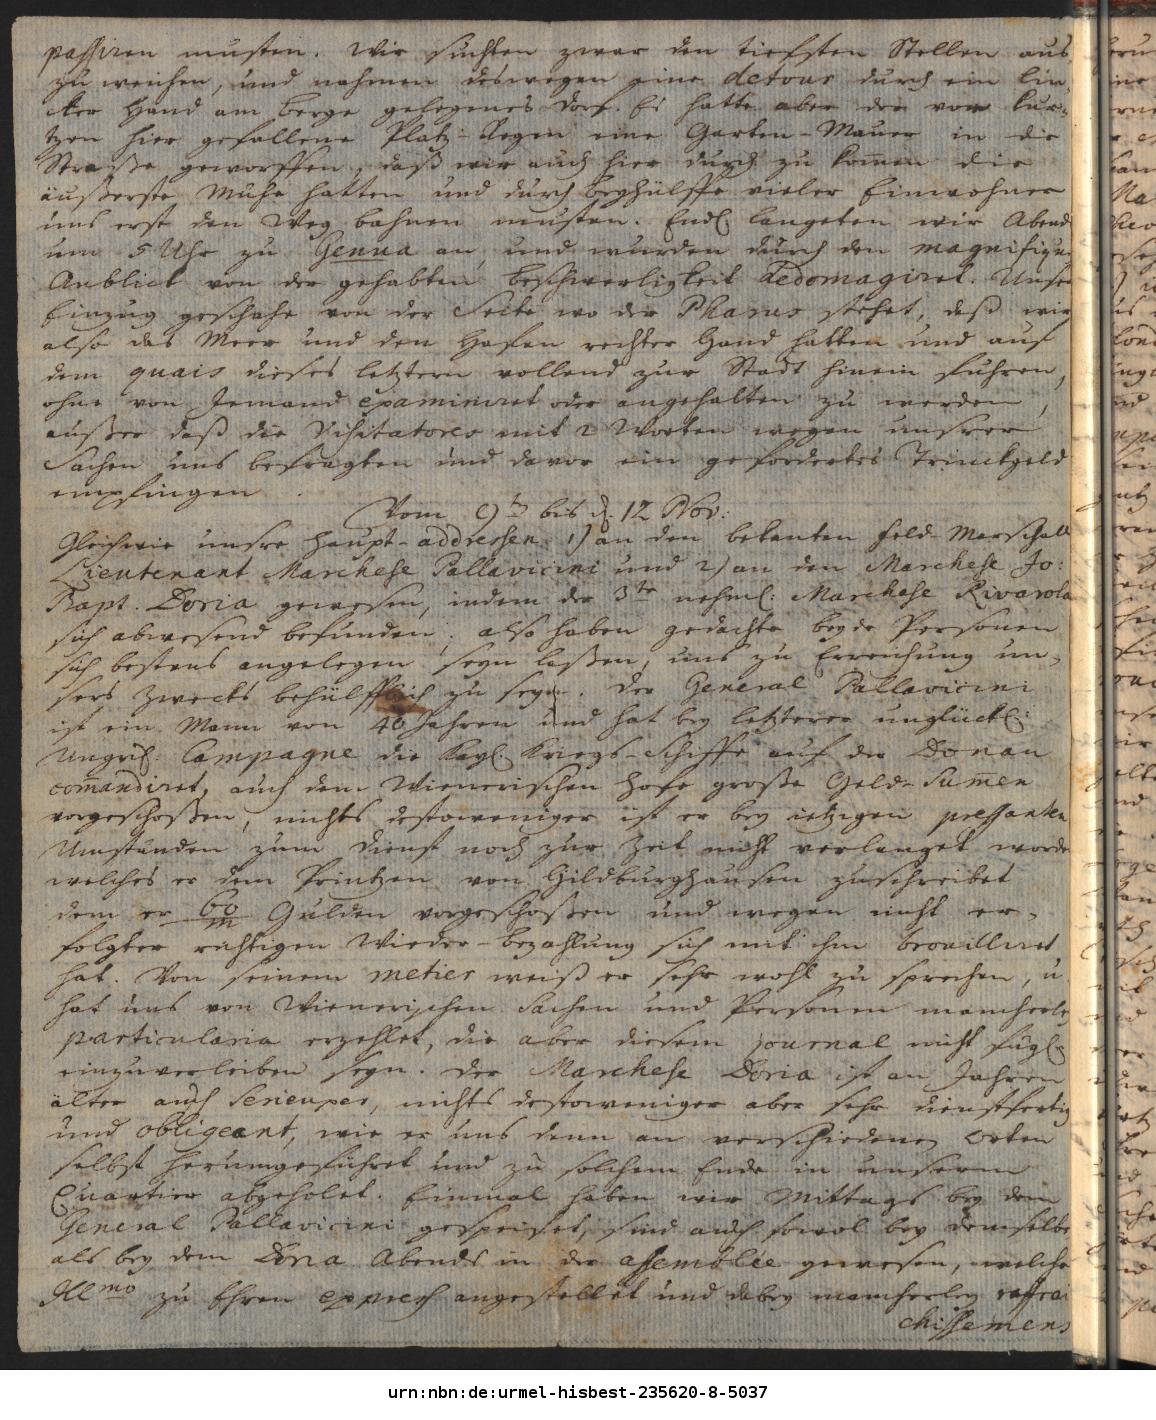 passiren musten. Wir suchten zwar den tiefsten Stellen aus
zu weichen, und nahmen deswegen eine detour durch ein lin-
cker Hand am Berge gelegenes Dorf. Es hatte aber der vor kur-
tzen hier gefallene Platz-Regen eine Garten-Mauer in die
Straße geworffen, daß wir auch hier durch zu komen die
äußerste Mühe hatten und durch beyhülffe vieler Einwohner
uns erst den Weg bahnen musten. Endl. langeten wir Abends
um 5 Uhr zu Genua an, und wurden durch den magnifiquen
Anblick von der gehabten beschwerligkeit dedomagiret. Unser
Einzug geschahe von der Seite wo der Pharus stehet, daß wir
also das Meer und den Hafen rechter Hand hatten und auf
dem quais dieses letztern vollend zur Stadt hinein fuhren,
ohne von Jemand examiniret oder angehalten zu werden,
außer daß die Visitatores mit 2 Worten wegen unsrer
Sachen uns befragten und davor ein gefordertes Trinckgeld
empfingen.
Vom 9ten bis d. 12 Nov:
Gleichwie unsre Haupt-addressen 1) an den bekanten Feld Marschall
Lieutenant Marchese Pallavicini und 2) an den Marchese Jo:
Bapt. Doria gewesen, indem der 3te nehml: Marchese Rivarola
sich abwesend befunden; also haben gedachte beyde Personen
sich bestens angelegen seyn laßen, uns zu Erreichung un-
sers Zwecks behülfflich zu seyn. Der General Pallavicini
ist ein Mann von 40 Jahren und hat bey letzterer unglückl:
Ungris: Campagne die Kayl. Kriegs-Schiffe auf der Donau
comandiret, auch dem Wienerischen Hofe große Geld-Sumen
vorgeschoßen, nichts destoweniger ist er bey ietzigen pressanten
Umständen zum Dienst noch zur Zeit nicht verlanget worden
welches er dem Printzen von Hildburghausen zuschreibet
dem er 60/m Gulden vorgeschoßen und wegen nicht er-
folgter richtigen Wieder-bezahlung sich mit ihm brouilliret
hat. Von seinem metier weiß er sehr wohl zu sprechen, u.
hat uns von Wienerischen Sachen und Personen mancherley
particularia erzehlet, die aber diesem journal nicht fügl.
einzuverleiben seyn. Der Marchese Doria ist an Jahren
älter auch serieuxer, nichts destoweniger aber sehr dienstfertig
und obligeant, wie er uns denn an verschiedenen Orten
selbst herumgeführet und zu solchem Ende in unserm
Quartier abgeholet. Einmal haben wir Mittags bey dem
General Pallavicini gespeiset, sind auch sowol bey demselben
als bey dem Doria Abends in der assemblée gewesen, welche
Illmo zu Ehren expreß angestellet und dabey mancherley raffrai
chissemens
urn:nbn:de:urmel-hisbest-235620-8-5037